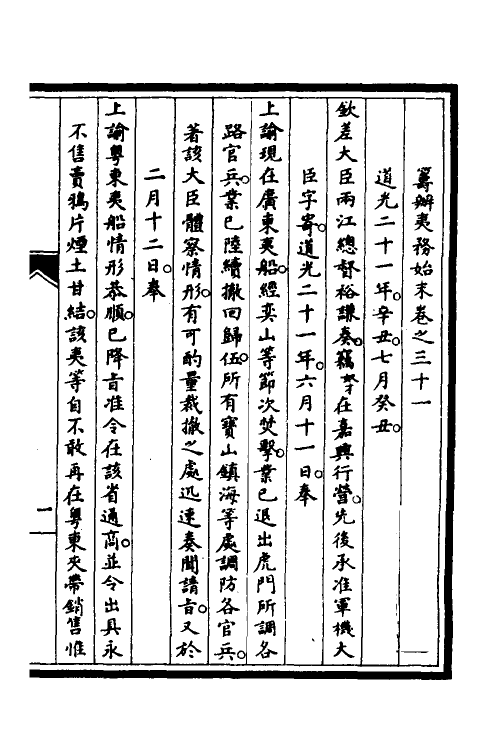 籌辦夷務始末卷之三十一
道光二十一年。辛丑。七月癸丑。
欽差大臣兩江總督裕謙奏。竊㚈在嘉興行營。先後承准軍機大
臣字寄。道光二十一年。六月十一日。奉
上諭現在廣東夷船。經奕山等節次焚擊。業已退出虎門所調各
路官兵。業已陸續撤回歸伍。所有寶山鎮海等處調防各官兵。
著該大臣體察情形。有可酌量裁撤之處迅速奏聞請旨。又於
二月十二日。奉
上諭粵東夷船情形恭順。已降旨准令在該省通商。並令出具永
不售賣鴉片煙土甘結。該夷等自不敢再在粵東夾帶銷售惟
一